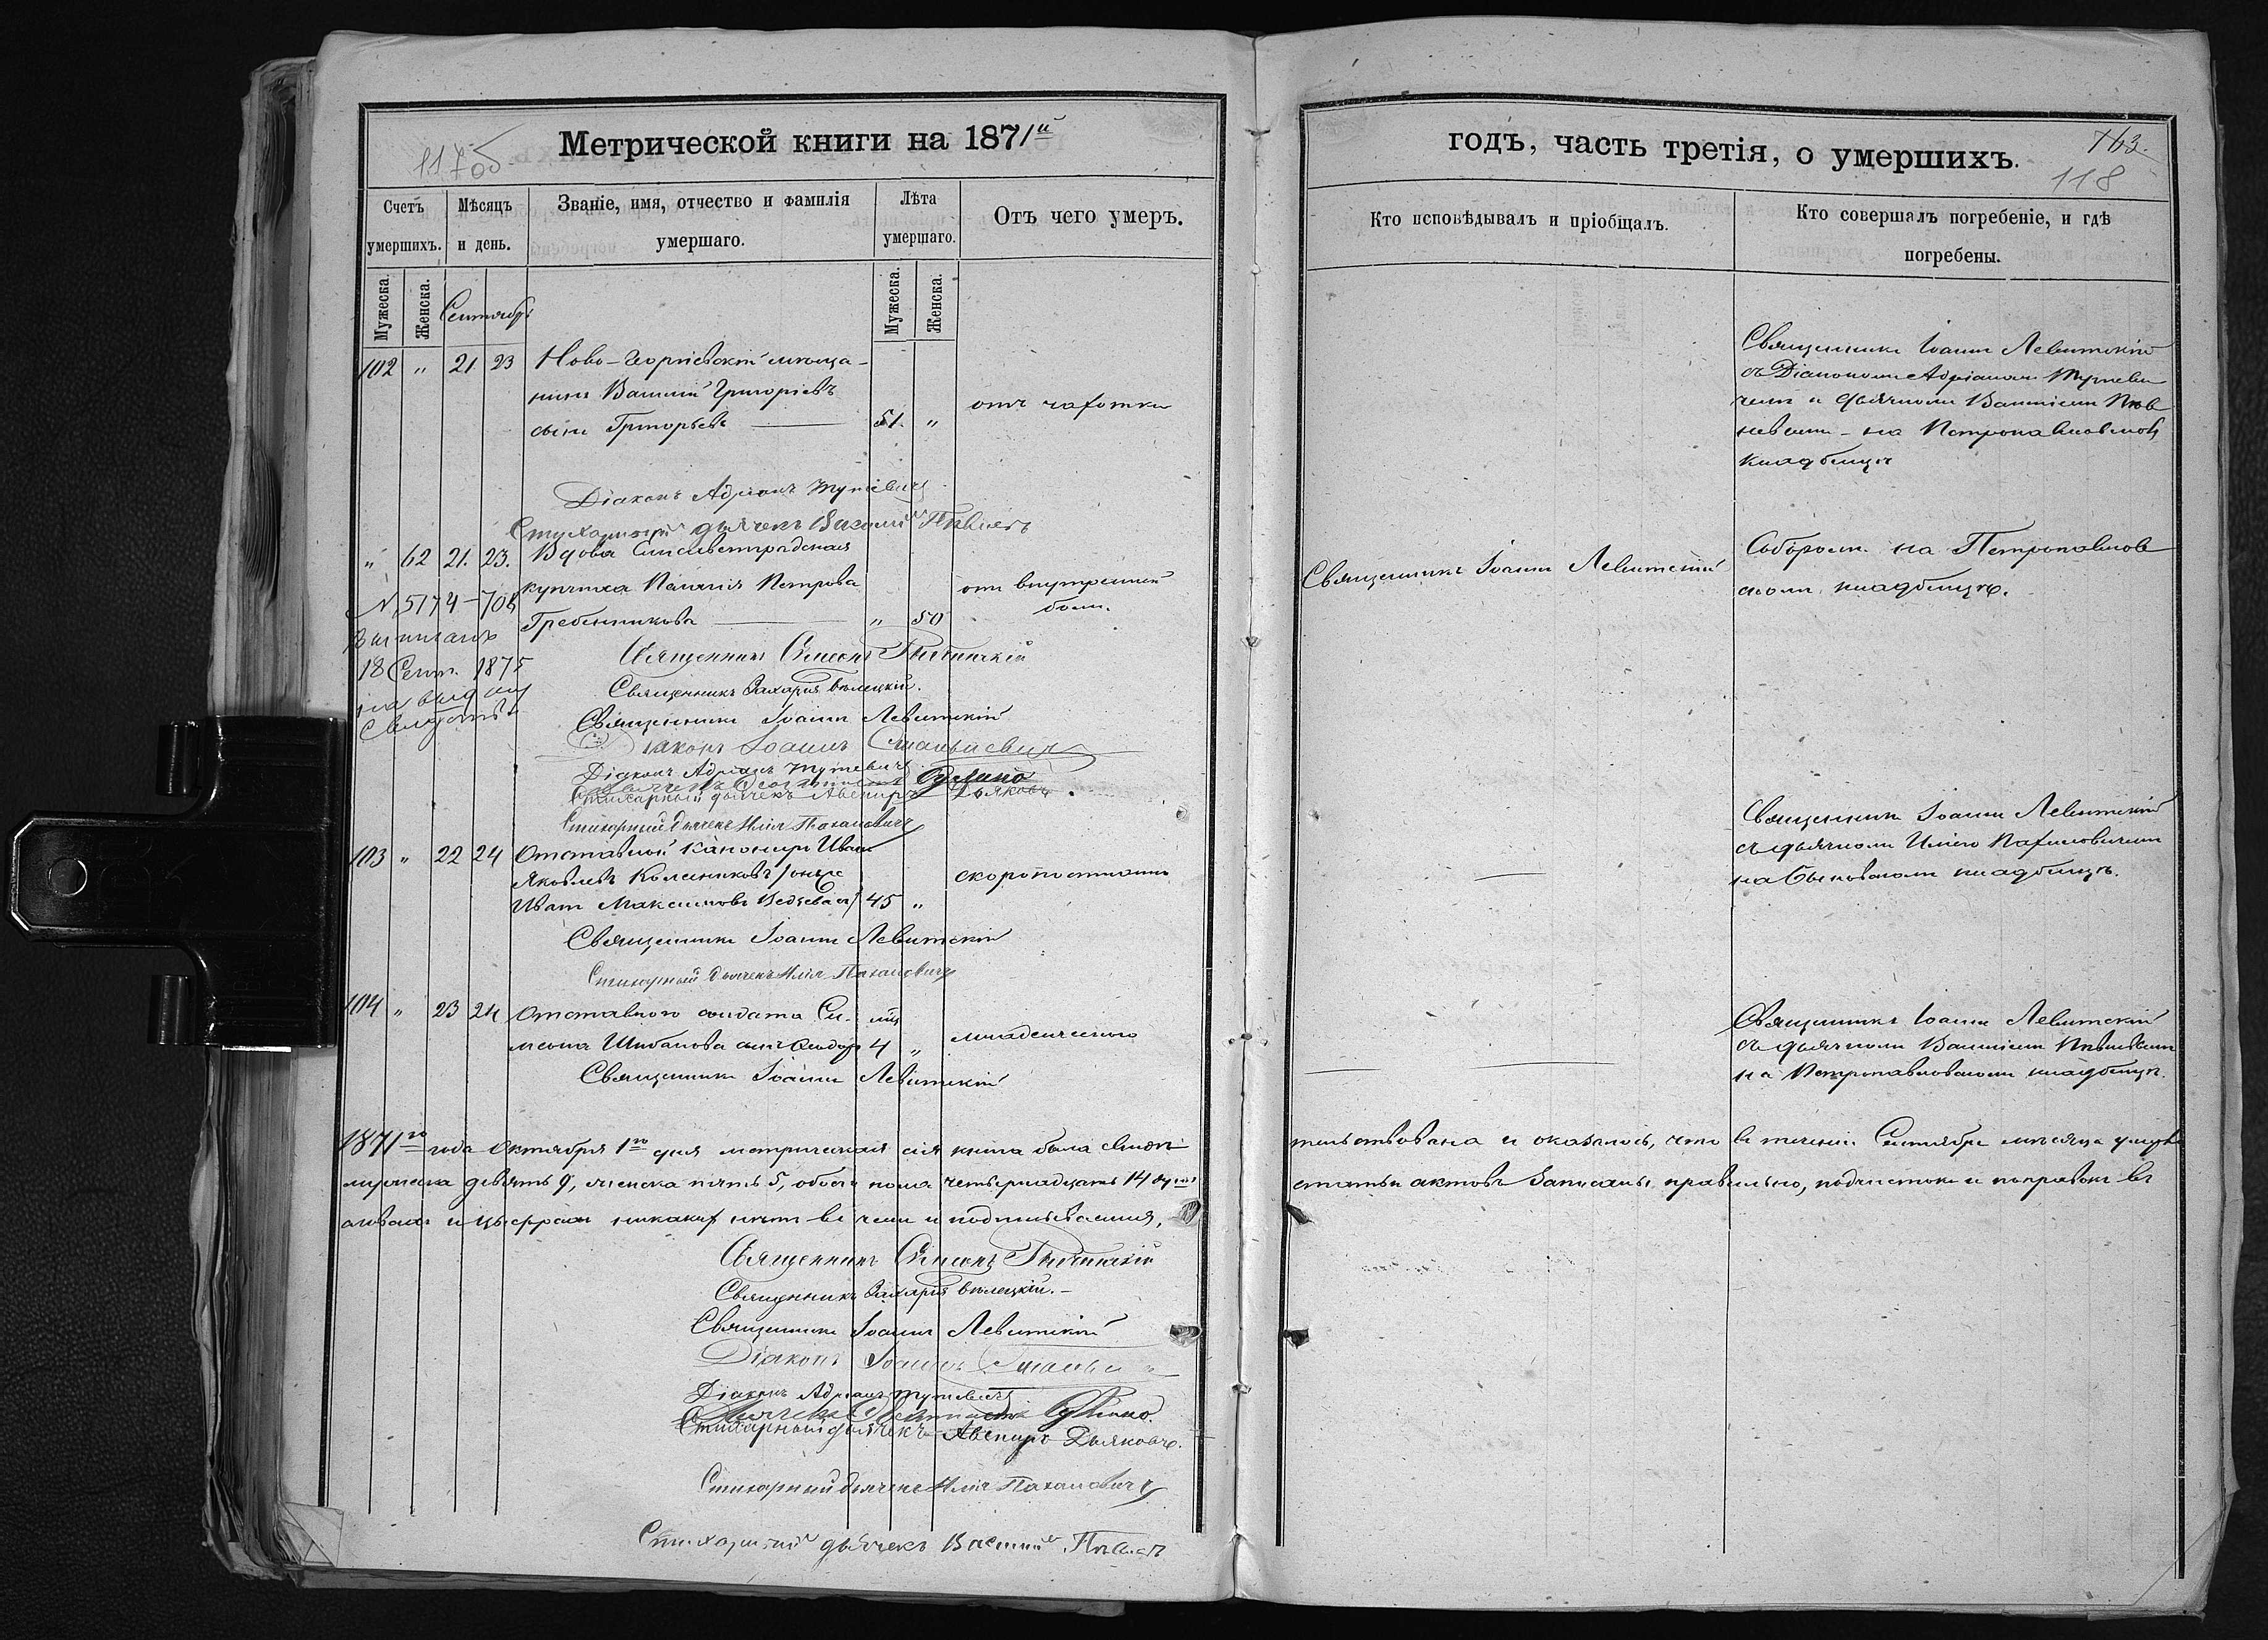 Метрической книги на 1871й
117об
Счетъ умершихъ.
Мѣсяцъ и день.
Званіе, имя, отчество и фамилія умершаго.
Лѣта умершаго.
Отъ чего умеръ.
Мужеска.
Женска.
Сентябрь
Мужеска.
Женска.
102 " 21. 23 Ново-Георгіевскій мѣща-
нинъ Василій Григоріевъ
сынъ Григорьевъ 51. " отъ чахотки
Діаконъ Адріанъ
Стихарный дьячекъ Василій Пѣвневъ
" 62 21. 23. Вдова Елисаветградская
купчиха Пелагія Петрова
Гребенникова " 50 отъ внутренней боли.
N 5174-708
18 Сент. 1875
на выдачу
Священникъ Симеонъ
Священникъ Захарія Бѣлецкій.
Священникъ Іоаннъ Левитскій
Діаконъ Іоаннъ
Діаконъ Адріанъ
Стихарный дьячекъ Авениръ Дьяковъ.
Стихарный дьячекъ Илія Пахаловичъ
103 " 22 24 Отставной Канониръ Иванъ
Яковлевъ Колесниковъ /онъ же
Иванъ Максимовъ 45 " скоропостижно
Священникъ Іоаннъ Левитскій
Стихарный дьячекъ Илія Пахаловичъ
104 " 23 24 Отставного солдата Си-
меона Шибанова сынъ Ѳеодоръ 4 мц " младенческого
Священникъ Іоаннъ Левитскій
1871го года Октября 1го дня метрическая сія книга была свидѣ
мужеска девять 9, женска пять 5, обоего пола четырнадцать 14 душъ
словахъ и цыфрахъ никакихъ нѣтъ въ чемъ и подписываемся,
Священникъ Симеонъ
Священникъ Захарія Бѣлецкій.
Священникъ Іоаннъ Левитскій
Діаконъ Іоаннъ
Діаконъ Адріанъ
Стихарный дьячекъ Авениръ Дьяковъ.
Стихарный дьячекъ Илія Пахаловичъ
Стихарный дьячекъ Василій Пѣвневъ
годъ, часть третія, о умершихъ.
163.
118
Кто исповѣдывалъ и пріобщалъ.
Кто совершалъ погребеніе, и гдѣ погребены.
Священникъ Іоаннъ Левитскій
съ Діакономъ Адріаномъ
и дьячкомъ Василіемъ Пѣв
невымъ - на Петропавловскомъ
кладбищѣ
Священникъ Іоаннъ Левитскій
Соборомъ на Петропавлов
скомъ кладбищѣ.
Священникъ Іоаннъ Левитскій
съ дьячкомъ Иліею Пахаловичемъ
на Быковскомъ кладбищѣ.
Священникъ Іоаннъ Левитскій
съ дьячкомъ Василіемъ Пѣвневымъ
на Петропавловскомъ кладбищѣ.
тельствована и оказалось, что въ теченіи Сентября мѣсяца умерш
статьи актовъ записаны правильно, подчистокъ и поправокъ въ